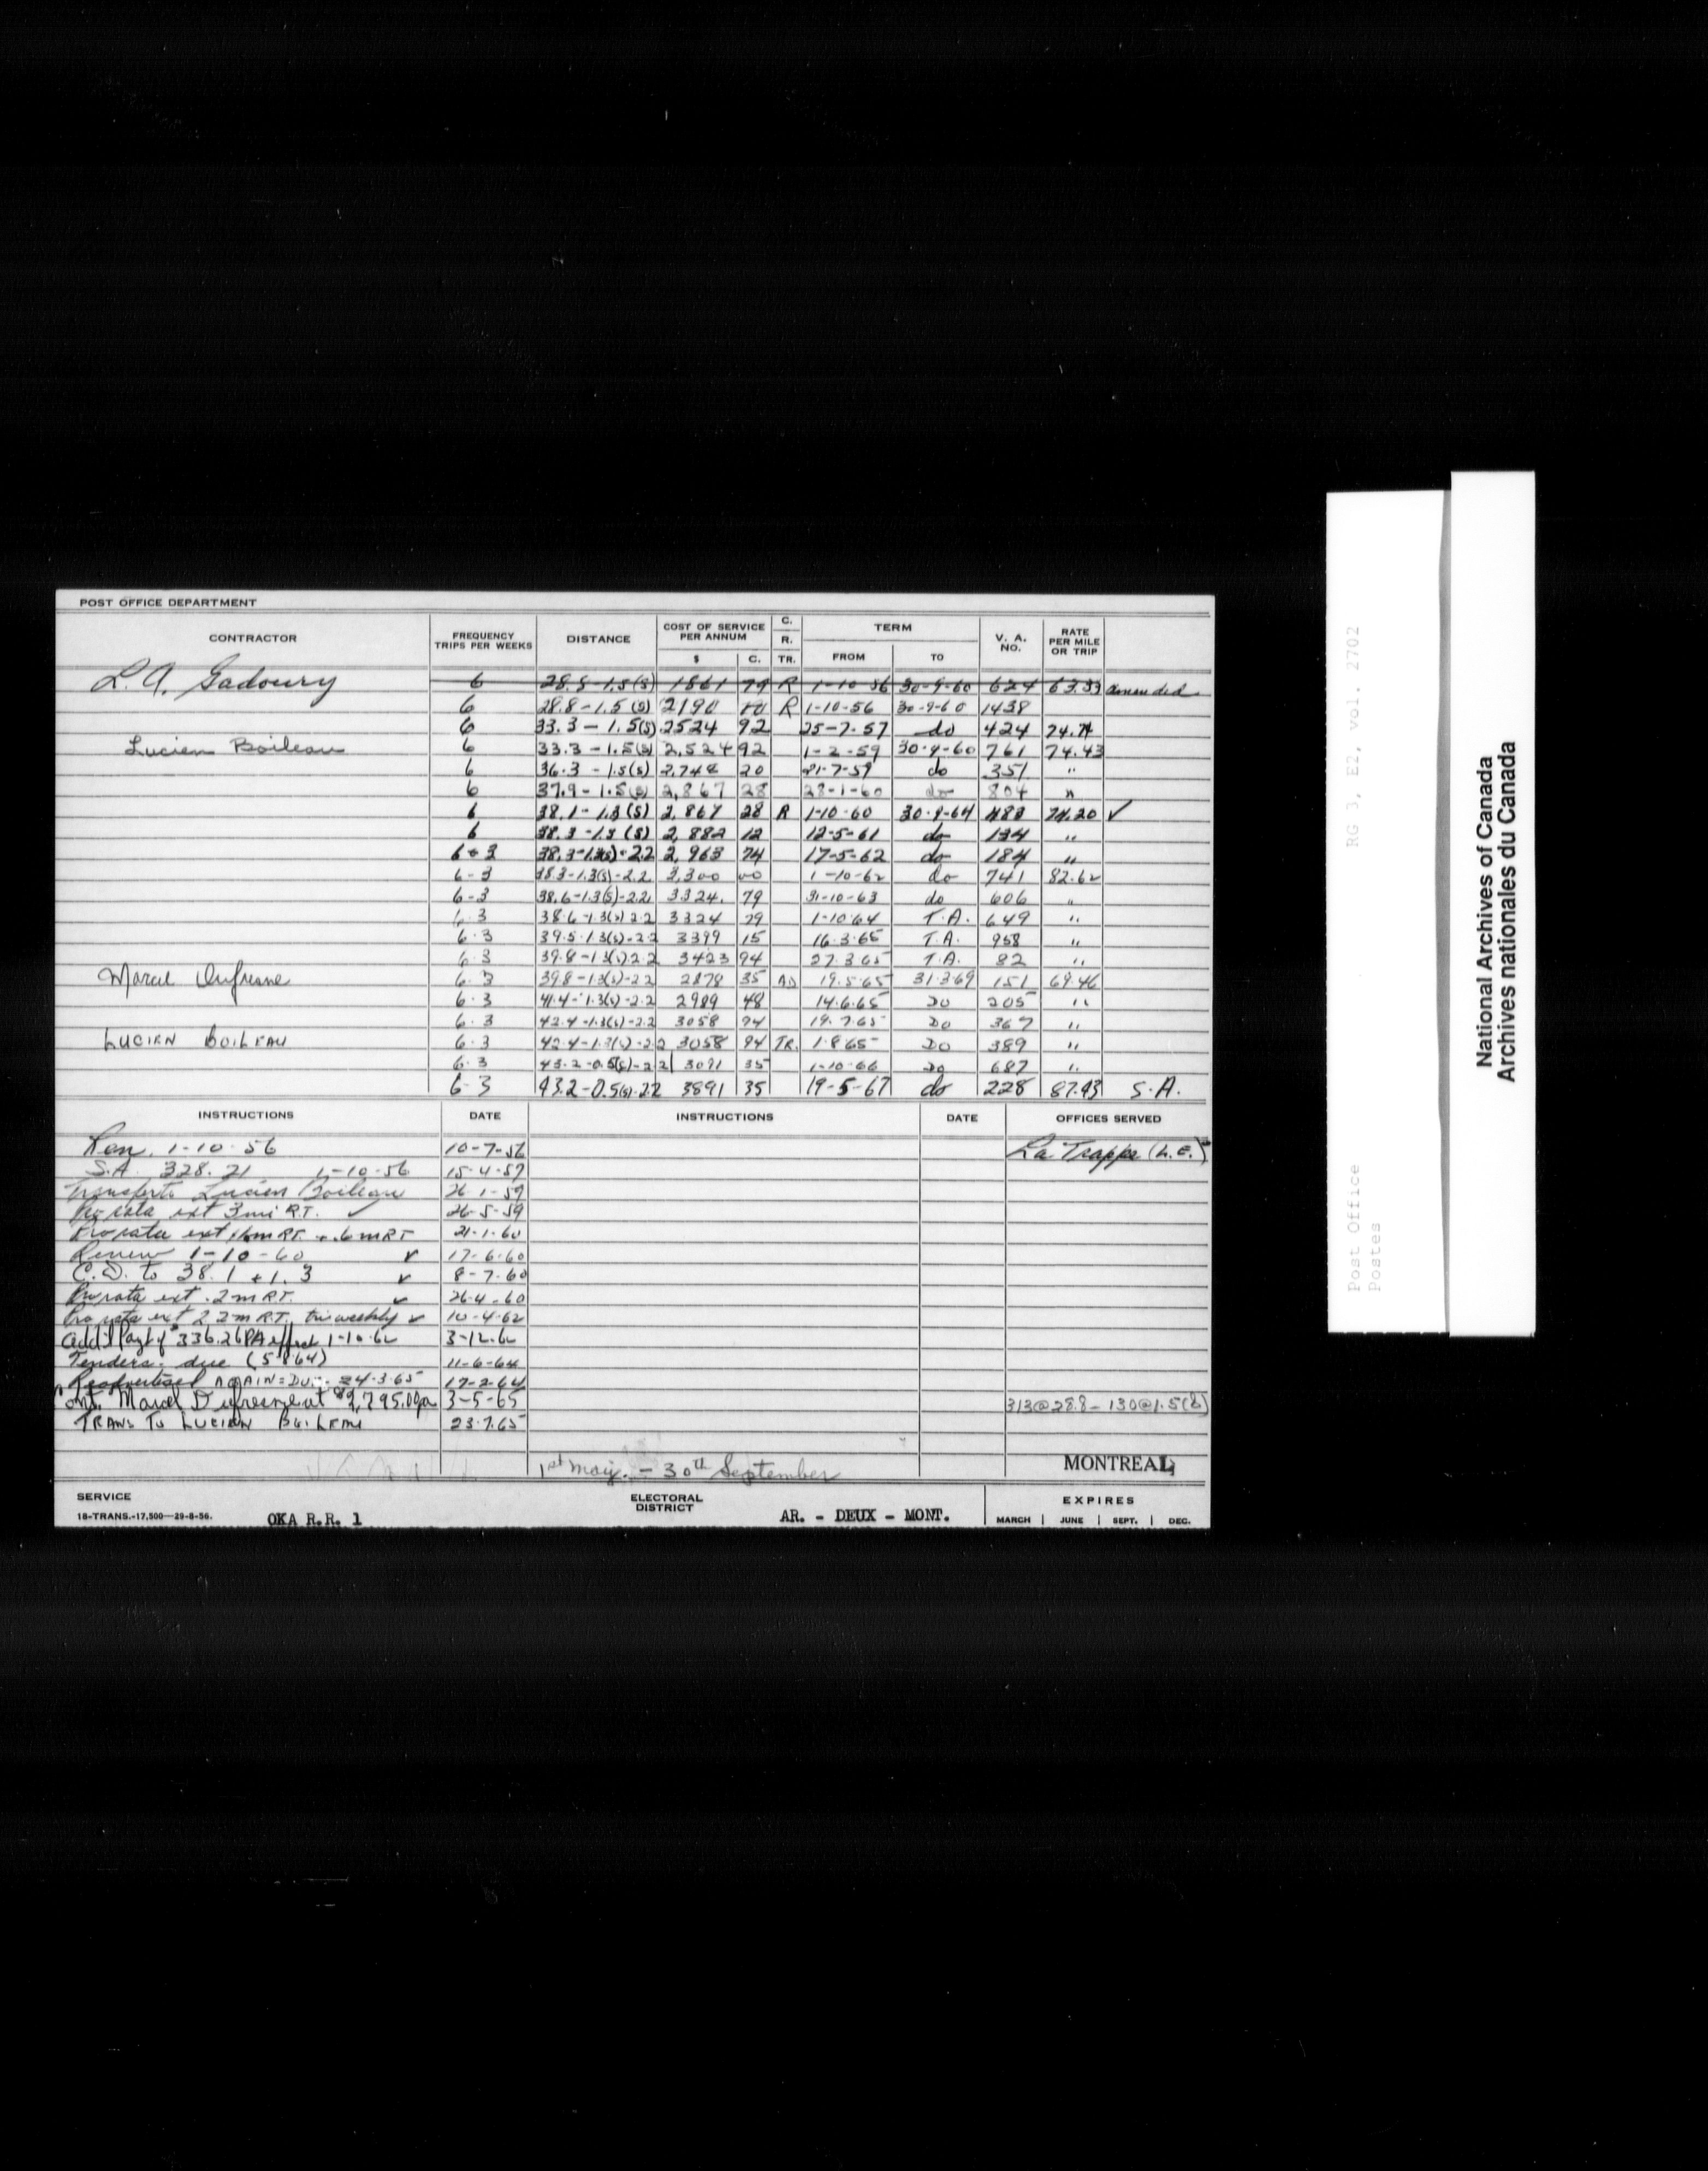 POST OFFICE DEPARTMENT
CONTRACTOR FREQUENCY TRIPS PER WEEKS DISTANCE COST OF SERVICE PER ANNUM $ C. C. R. TR. TERM FROM TO V. A. NO. RATE PER MILE OR TRIP
L. A. Gadoury 6 28.8-1.5(s) 1861 79 R 1-10-56 30-9-60 624 63.39 amended
6 28.8-1.5(s) 2190 00 R 1-10-56 30-9-60 1438
6 33.3-1.5(s) 2524 92 25-7-57 do 424 74.74
Lucien Boileau 6 33.3-1.5(s) 2,524 92 1-2-59 30-9-60 761 74.43
6 36.3-1.5(s) 2,748 20 21-7-59 do 351 "
6 37.9-1.5(s) 2,867 28 28-1-60 do 804 "
6 38.1-1.3(s) 2,867 28 R 1-10-60 30-9-64 483 74.20 ✓
6 38.3-1.3(s) 2,882 12 12-5-61 do 134 "
6+3 38.3-1.3(s)-2.2 2,963 74 17-5-62 do 184 "
6-3 38.3-1.3(s)-2.2 3,300 00 1-10-62 do 741 82.62
6-3 38.6-1.3(s)-2.2 3324. 79 31-10-63 do 606 "
6.3 38.6-1.3(s)-2.2 3324 79 1-10-64 T.A. 649 "
6.3 39.5-1.3(s)-2.2 3399 15 16.3.65 T.A. 958 "
6.3 39.8-1.3(s)-2.2 3423 94 27.3.65 T.A. 82 "
Marcel Dufresne 6.3 39.8-1.3(s)-2.2 2878 35 AD 19.5.65 31.3.69 151 69.46
6.3 41.4-1.3(s)-2.2 2989 48 14.6.65 Do 205 "
6.3 42.4-1.3(s)-2.2 3058 94 19.7.65 Do 367 "
LUCIEN BOILEAU 6.3 42.4-1.3(s)-2.2 3058 94 TR. 1.8.65 Do 389 "
6.3 43.2-0.5(s)-2.2 3091 35 1-10-66 Do 687 "
6-3 43.2-0.5(s)-2.2 3891 35 19-5-67 do 228 87.43 S.A.
INSTRUCTIONS DATE INSTRUCTIONS DATE OFFICES SERVED
Ren. 1-10-56 10-7-56 La Trappe (L.C.)
S.A. 328.21 1-10-56 15-4-57
Transfer to Lucien Boileau 26-1-59
Pro rata ext 3mi R.T. ✓ 26-5-59
Pro rata ext 1.6m RT + .6 m RT 21-1-60
Renew 1-10-60 ✓ 17-6-60
C.D. to 38.1 + 1.3 ✓ 8-7-60
Pro rata ext .2 m R.T. ✓ 26-4-60
Pro rata ext 2.2 m R.T. tri weekly ✓ 10-4-62
Add'l Pay of $336.26 PA effect 1-10-62 3-12-62
Tenders due (5-8-64) 11-6-64
Readvertised AGAIN = DUE 24.3.65 17-2-64
Cont. Marcel Dufresne at $2,795.00pa 3-5-65 313@28.8-130@1.5(s)
TRANS TO LUCIEN BOILEAU 23.7.65
1st May. - 30th September MONTREAL
SERVICE ELECTORAL DISTRICT EXPIRES
18-TRANS.-17,500—29-8-56. OKA R.R. 1 AR. - DEUX - MONT. MARCH | JUNE | SEPT. | DEC.
RG 3, E2, vol. 2702
Post Office
Postes
National Archives of Canada
Archives nationales du Canada